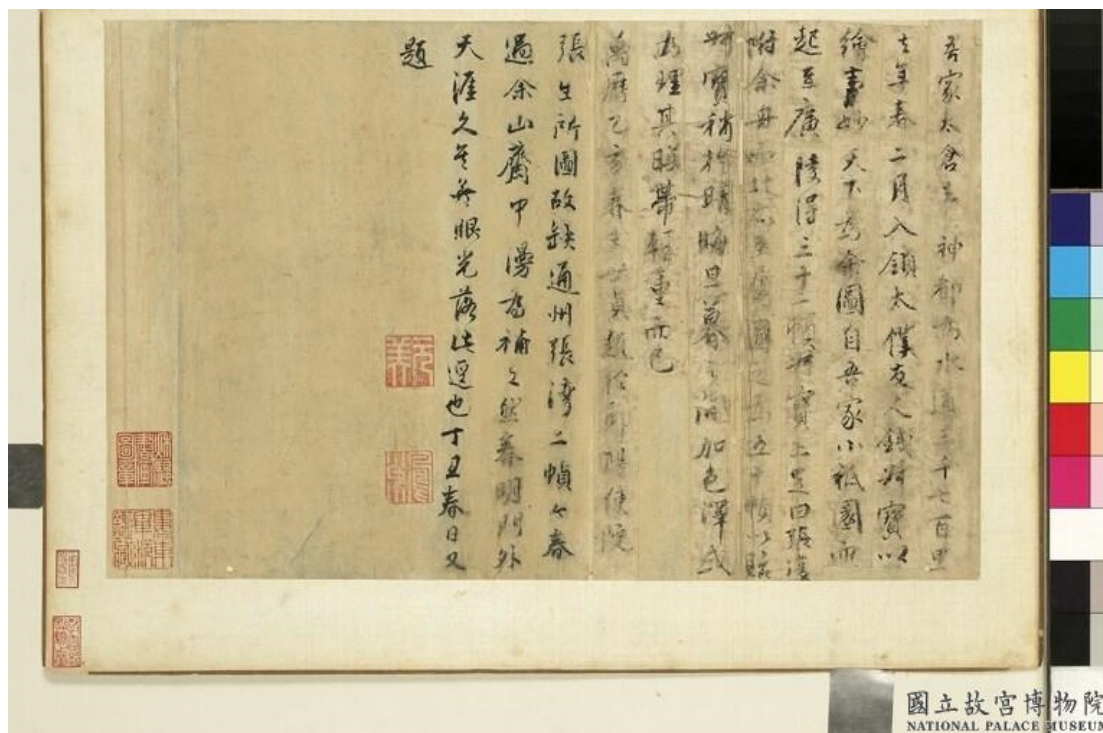 吾家太倉去神都為水道三千七百里
去年春二月入領太僕友人錢叔寶以
繪事妙天下為余圖自吾家小祇園而
起至廣陵得三十二幀叔寶上足曰張復
附余舟而北所至屬圖之為五十幀以貽
叔寶稍於晴晦旦暮之間加色澤或
為理其映帶輕重而已
萬曆乙亥春王世貞題於鄖陽使院
張生所圖故缺通州張灣二幀今春
過余山齋中漫為補之然春明門外
天涯久矣無眼光落此逕也丁丑春日又
題
元美
國立故宮博物院
NATIONAL PALACE MUSEUM